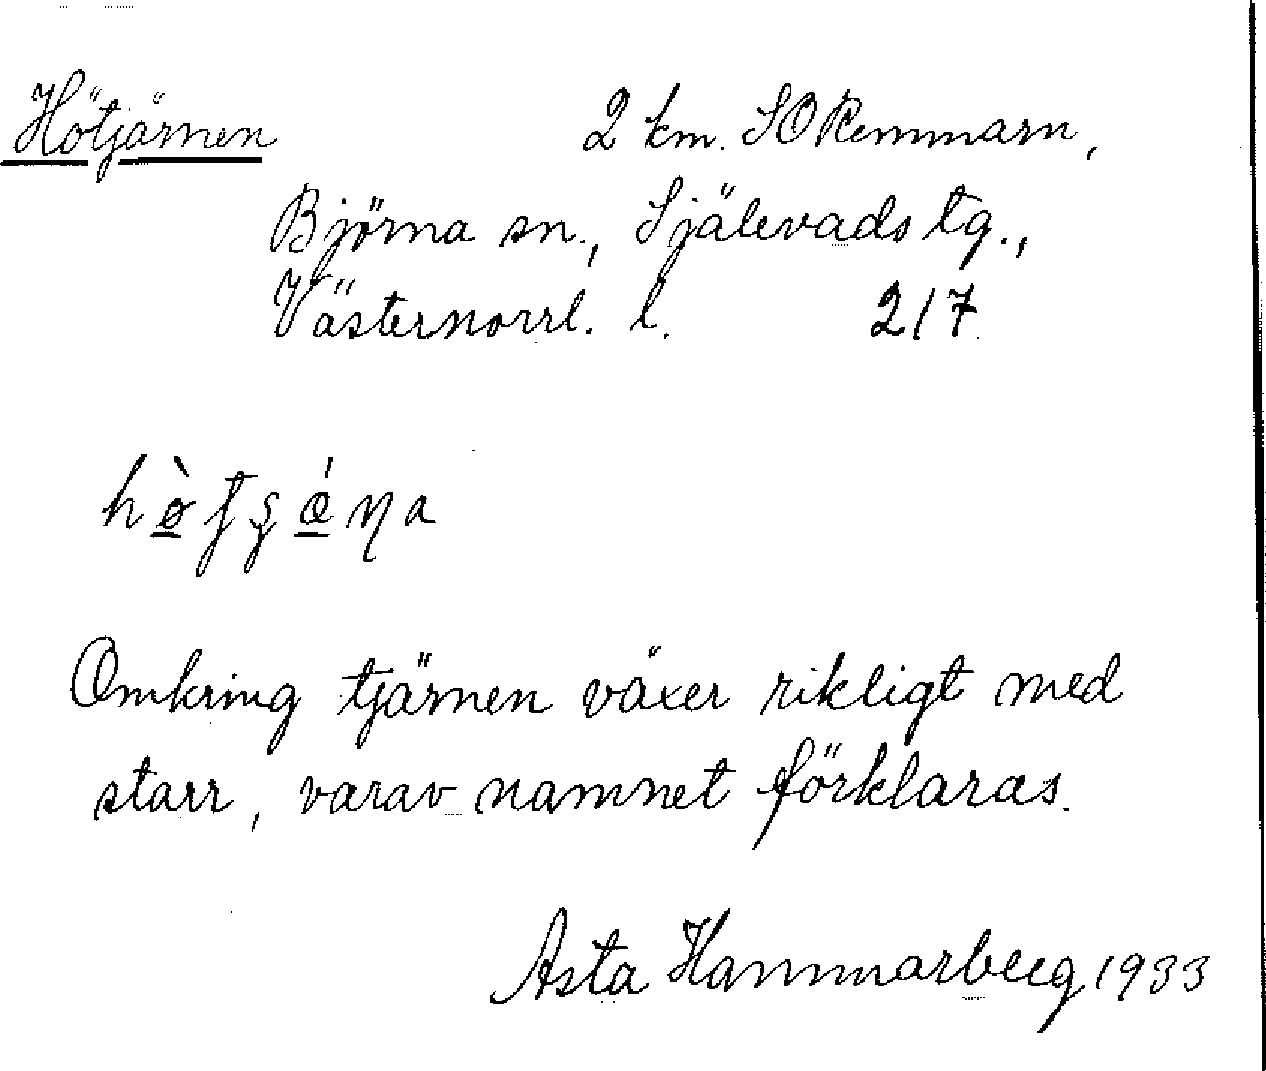 Hötjärnen 2 km. SO Remmarn,
Björna sn., Själevads tg.,
Västernorrl. l. 217
Omkring tjärnen växer rikligt med
starr, varav namnet förklaras.
Asta Hammarberg 1933